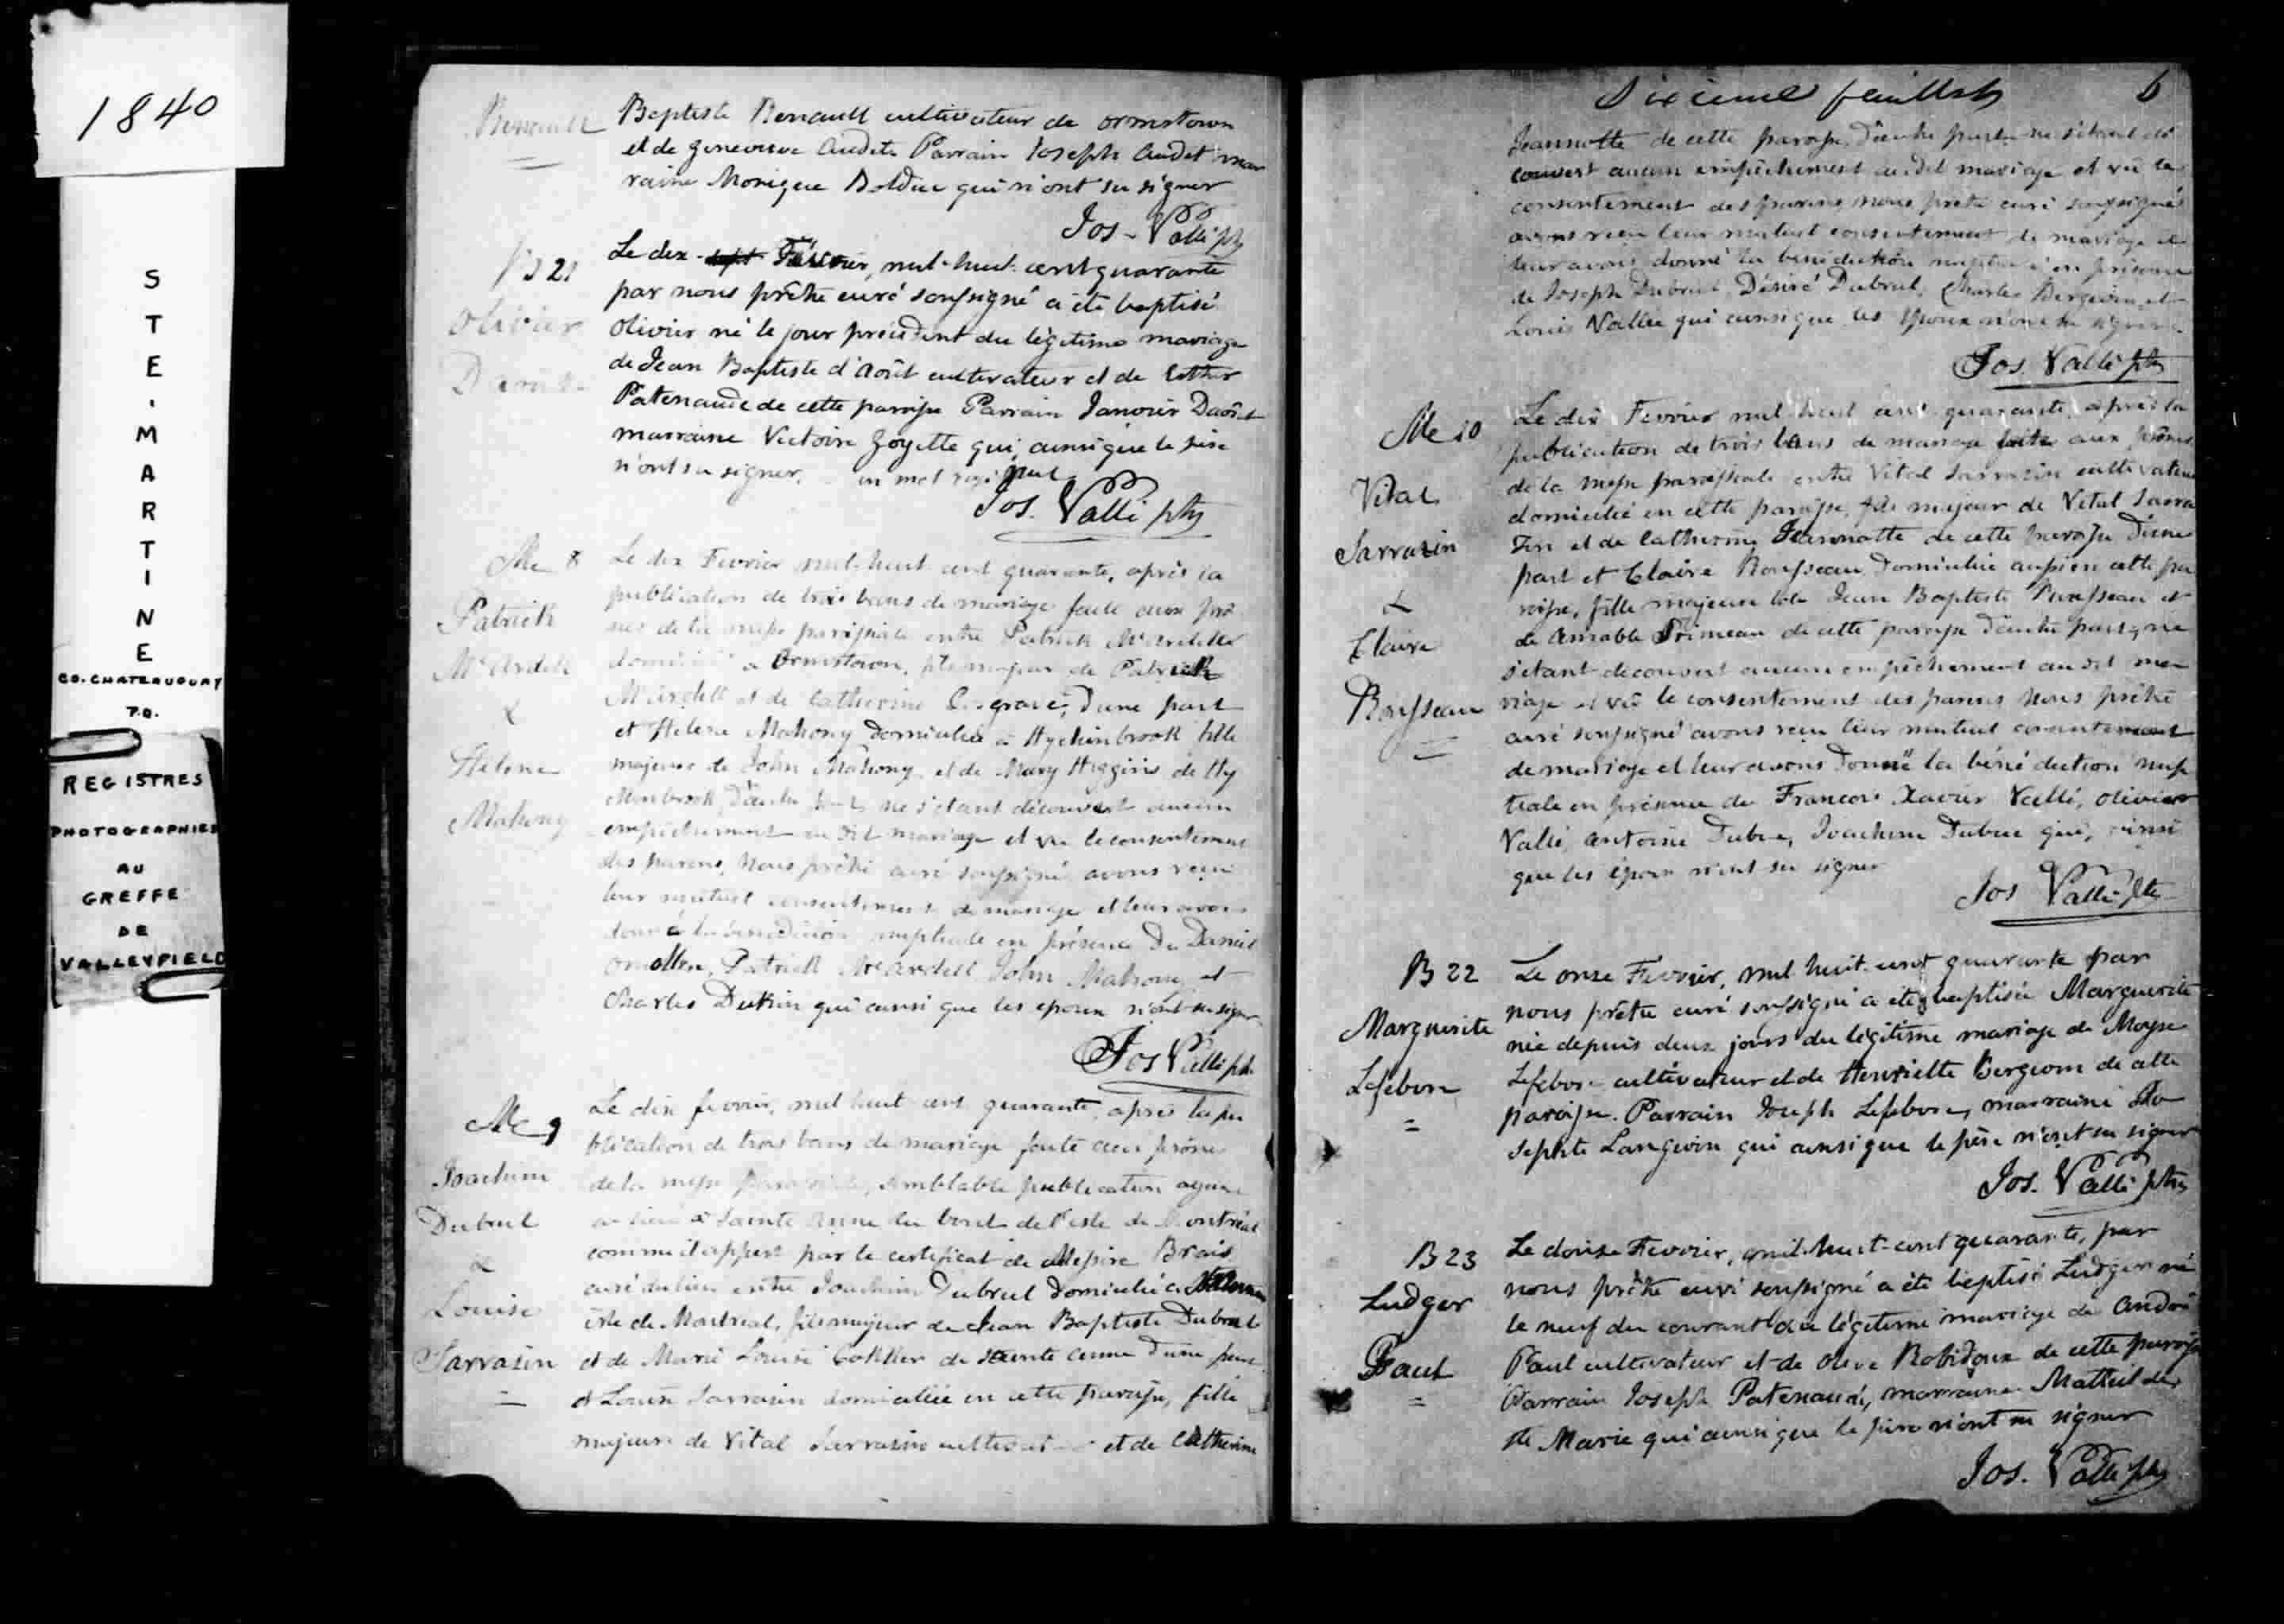 1840
STE. MARTINE
CO. CHATEAUGUAY
P.Q.
REGISTRES
PHOTOGRAPHIES
AU
GREFFE
DE
VALLEYFIELD
Renault
Baptiste Renault cultivateur de ormstown
et de genevieve Audette Parrain Joseph Audet mar
raine Monique Bolduc qui n'ont su signer
Jos - Vallé ptre
B 21
Olivier
Daout
Le dix sept Février, mil-huit cent quarante
par nous prêtre curé soussigné a été baptisé
Olivier né le jour précédent du légitime mariage
de Jean Baptiste d'Août cultivateur et de Esther
Patenaude de cette paroisse Parrain Janvier Daôut
marraine Victoire Goyette qui, ainsi que le père
n'ont su signer. un mot rayé nul
Jos. Vallé ptre
Me 8
Patrick
McArdell
&
Helene
Mahony
Le dix Fevrier mil-huit cent quarante, après la
publication de trois bans de mariage faite aux prô
nes de la messe paroissiale entre Patrick McArdell
domicilié à Ormstown, fils majeur de Patrick
McArdell et de Catherine Cosgrave, d'une part
et Helene Mahony domiciliée à Hychinbrook fille
majeure de John Mahony et de Mary Higgins de Hy
chinbrook, d'autre part, ne s'étant découvert aucun
empêchement au dit mariage et vu le consentement
des parens, Nous prêtre curé soussigné avons reçu
leur mutuel consentement de mariage et leur avons
donné la bénédiction nuptiale en présence de Daniel
Patrick McArdell, John Mahony et
Charles Durkin qui ainsi que les epoux n'ont su signer
Jos Vallé ptre
Me 9
Joachim
Dubrul
&
Louise
Sarrasin
Le dix fevrier, mil huit cent quarante, après la pu
blication de trois bans de mariage faite aux prônes
de la messe paroissiale, semblable publication ayant
eu lieu à Sainte Anne du bout de l'isle de Montréal
comme il appert par le certificat de Messire Brais
curé du lieu entre Joachim Dubrul domicilié à
isle de Montreal, fils majeur de Jean Baptiste Dubrul
et de Marie Louise de Sainte Anne d'une part
et Louise Sarrasin domiciliée en cette paroisse, fille
majeure de Vital Sarrasin cultivateur et de Catherine
Sixieme feuillet
6
Jeannotte de cette paroisse, d'autre part ne s'étant dé
couvert aucun empêchement au dit mariage et vû le
consentement des parens, nous prêtre curé soussigné
avons reçu leur mutuel consentement de mariage et
leur avons donné la bénédiction nuptiale en présence
de Joseph Dubrul, Désiré Dubrul, Charles Bergevin et
Louis Vallée qui ainsi que les époux n'ont su signer
Jos. Vallé ptre
Me 10
Vital
Sarrasin
&
Claire
Rousseau
Le dix Fevrier mil huit cent quarante, après la
publication de trois bans de mariage faite aux prônes
de la messe paroissiale entre Vital Sarrasin cultivateur
domicilié en cette paroisse, fils majeur de Vital Sarra
zin et de Catherine Jeannotte de cette paroisse d'une
part et Claire Rousseau domiciliée aussi en cette pa
roisse, fille majeure de Jean Baptiste Rousseau et
de Amable Primeau de cette paroisse d'autre part, ne
s'etant decouvert aucun empêchement au dit ma
riage et vû le consentement des parens Nous prêtre
curé soussigné avons reçu leur mutuel consentement
de mariage et leur avons donné la bénédiction nup
tiale en présence de Francois Xavier Vallé, Olivier
Vallé, Antoine Dubuc, Joachim Dubuc qui, ainsi
que les époux n'ont su signer
Jos Vallé ptre
B 22
Marguerite
Lefebvre
=
Le onze Fevrier, mil huit-cent quarante par
nous prêtre curé soussigné a été baptisée Marguerite
née depuis deux jours du légitime mariage de Moyse
Lefebvre cultivateur et de Henriette Bergevin de cette
paroisse. Parrain Joseph Lefebvre, marraine Jo
sephte Langevin qui ainsi que le père n'ont su signer
Jos. Vallé ptre
B 23
Ludger
Paul
=
Le douze Fevrier, mil-huit-cent quarante, par
nous prêtre curé soussigné a été baptisé Ludger né
le neuf du courant du légitime mariage de André
Paul cultivateur et de Olive Robidoux de cette paroisse
Parrain Joseph Patenaude, marraine Mathilde
Ste Marie qui ainsi que le père n'ont su signer
Jos. Vallé ptre